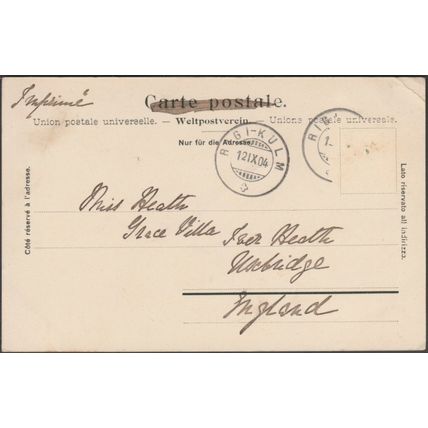 Imprimé
Carte postale.
Union postale universelle. — Weltpostverein. — Unione postale universale.
Nur für die Adresse.
RIGI-KULM
12 IX 04
RIGI
1
Côté réservé à l'adresse.
Lato riservato all' indirizzo.
Miss Heath
Grace Villa
Iver Heath
Uxbridge
England